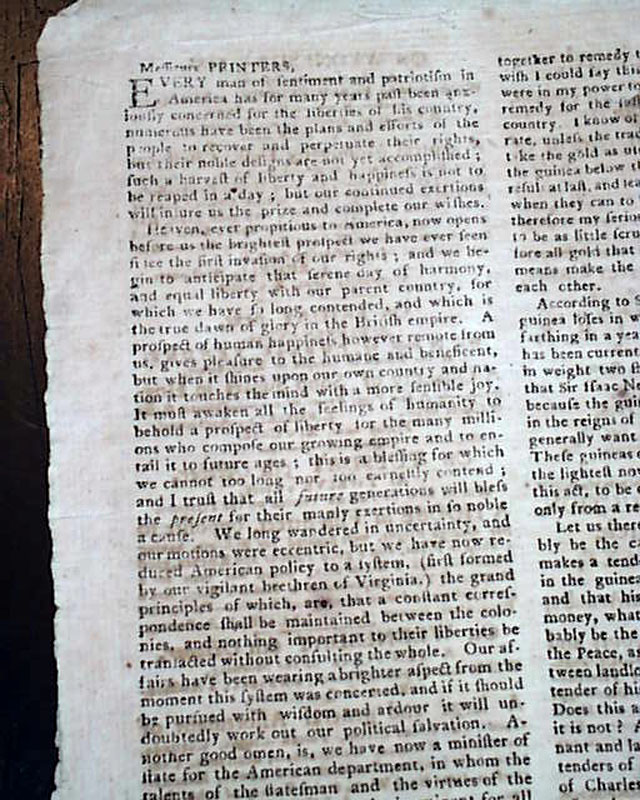 Messieurs PRINTERS,
EVERY man of ſentiment and patriotiſm in
America has for many years paſt been anx-
iouſly concerned for the liberties of his country,
numerous have been the plans and efforts of the
people to recover and perpetuate their rights,
but their noble deſigns are not yet accompliſhed ;
ſuch a harveſt of liberty and happineſs is not to
be reaped in a day ; but our continued exertions
will inſure us the prize and complete our wiſhes.
Heaven, ever propitious to America, now opens
before us the brighteſt proſpect we have ever ſeen
ſince the firſt invaſion of our rights ; and we be-
gin to anticipate that ſerene day of harmony,
and equal liberty with our parent country, for
which we have ſo long contended, and which is
the true dawn of glory in the Britiſh empire. A
proſpect of human happineſs however remote from
us, gives pleaſure to the humane and beneficent,
but when it ſhines upon our own country and na-
tion it touches the mind with a more ſenſible joy.
It muſt awaken all the feelings of humanity to
behold a proſpect of liberty for the many milli-
ons who compoſe our growing empire and to en-
tail it to future ages ; this is a bleſſing for which
we cannot too long nor too earneſtly contend ;
and I truſt that all future generations will bleſs
the preſent for their manly exertions in ſo noble
a cauſe. We long wandered in uncertainty, and
our motions were eccentric, but we have now re-
duced American policy to a ſyſtem, (firſt formed
by our vigilant brethren of Virginia,) the grand
principles of which, are, that a conſtant correſ-
pondence ſhall be maintained between the colo-
nies, and nothing important to their liberties be
tranſacted without conſulting the whole. Our af-
fairs have been wearing a brighter aſpect from the
moment this ſyſtem was concerted, and if it ſhould
be purſued with wiſdom and ardour it will un-
doubtedly work out our political ſalvation. A-
nother good omen, is, we have now a miniſter of
ſtate for the American department, in whom the
talents of the ſtateſman and the virtues of the
for all
together to remedy
wiſh I could ſay this
were in my power to
remedy for the
country. I know of
rate, unleſs the
take the gold as
the guinea below
at laſt, and
when they can to
therefore my
to be as little
fore all gold that
means make the
each other.
According to
guinea loſes in
farthing in a year
has been current
in weight two
that Sir Iſaac
becauſe the
in the reigns of
generally want
Theſe guineas
the lighteſt
this act, to be
only from a
Let us
bly be the
makes a
in the
and that his
money, what
bably be the
the Peace, as
tween
tender of
Does this
it is not ?
nant and
tenders of
of Charles